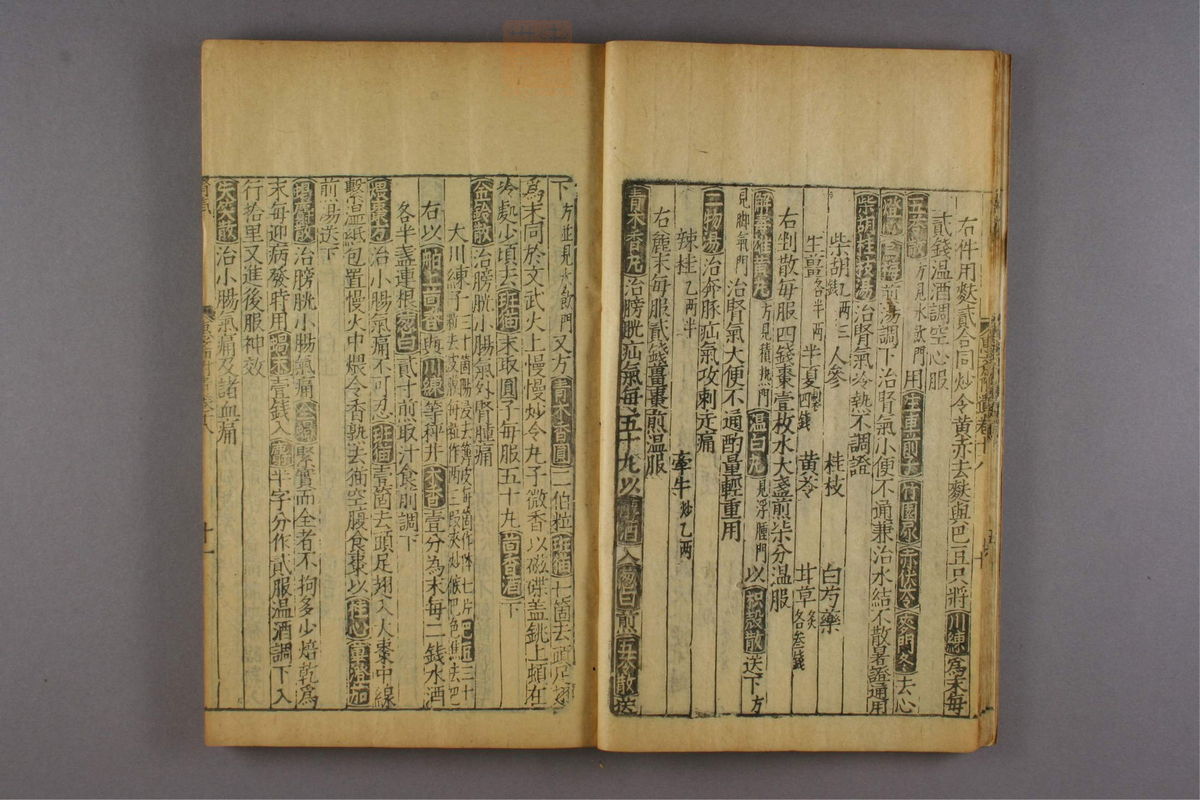 右件用麩貳合同炒令黄赤去麩與巴豆只將川練爲末每
貳錢温酒調空心服
五苓散方見水飲門用生車前子竹園荽赤茯苓麥門冬去心
燈心烏梅煎湯調下治腎氣小便不通兼治水結不散暑證通用
柴胡桂枝湯治腎氣冷熱不調證
柴胡乙兩三錢 人參 桂枝 白芍藥
生薑各半兩 半夏製四錢 黄芩 甘草炙各叁錢
右剉散每服四錢棗壹枚水大盞煎柒分温服
解毒雄黄丸方見積熱門温白丸見浮腫門以枳殼散送下方
見脚氣門治腎氣大便不通酌量輕重用
二物湯治奔豚疝氣攻刺走痛
辣桂乙兩半 牽牛炒乙兩
右麄末每服貳錢薑棗煎温服
青木香丸治膀胱疝氣每五十丸以醇酒入葱白煎五苓散送
下方並見水飲門又方青木香圓二伯粒班猫七箇去頭足翅
爲末同於文武火上慢慢炒令丸子微香以磁碟盖銚上頓在
冷處少頃去班猫末取圓子每服五十丸茴香酒下
金鈴散治膀胱小腸氣外腎腫痛
大川練子三十箇
右以舶上茴香與川練等秤并木香壹分為末每二錢水酒
各半盞連根葱白貳寸煎取汁食前調下
煨棗方治小腸氣痛不可忍班猫壹箇去頭足翅入大棗中線
繫濕紙包置慢火中煨令香熟去猫空腹食棗以桂心蓽澄茄
前湯送下
蝎麝散治膀胱小腸氣痛全蝎緊實而全者不拘多少焙乾爲
末每迎病發時用蝎末壹錢入麝半字分作貳服温酒調下入
行拾里又進後服神效
失笑散治小腸氣痛及諸血痛